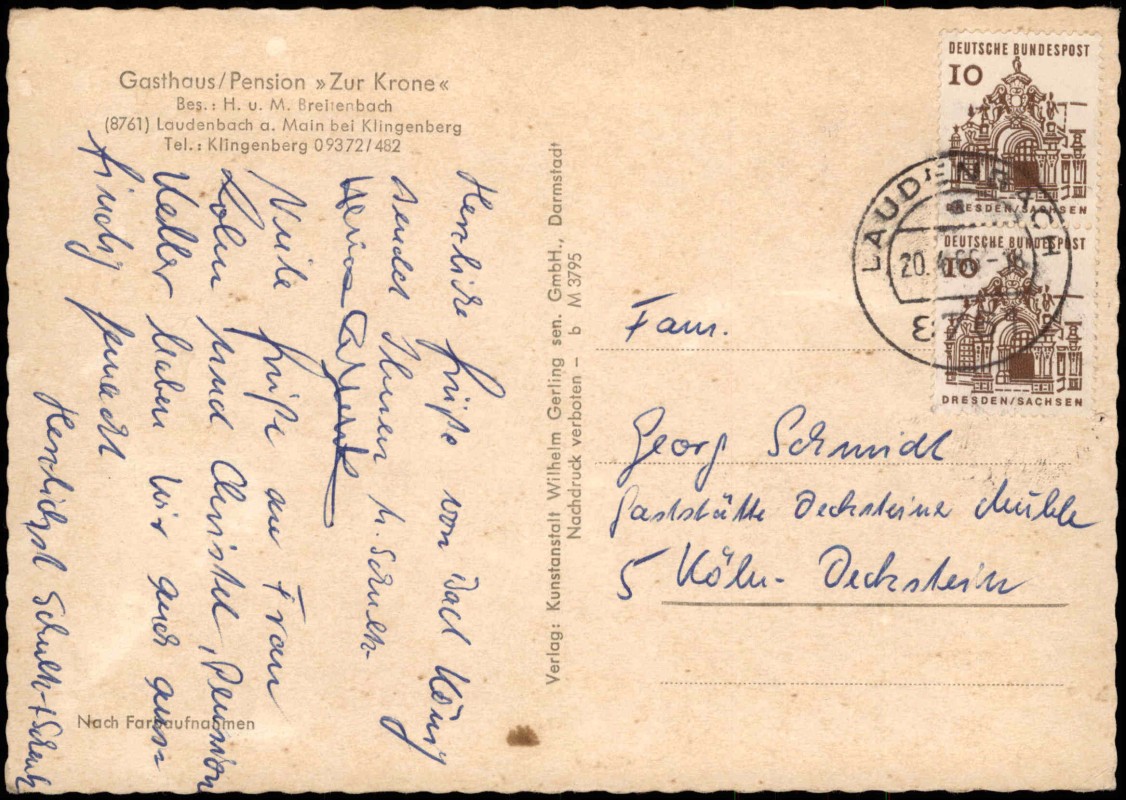 Gasthaus/Pension »Zur Krone«
Bes.: H. u. M. Breitenbach
(8761) Laudenbach a. Main bei Klingenberg
Tel.: Klingenberg 09372/482
Herzliche Grüße von Bad König
sendet Ihnen H. Schulk-
Viele Grüße an Frau
Lohn und Christel, Pension
haben wir auch aus-
findig gemacht
Herzlichst
Nach Farbaufnahmen
Verlag: Kunstanstalt Wilhelm Gerling sen. GmbH., Darmstadt
Nachdruck verboten – b M 3795
DEUTSCHE BUNDESPOST
10
DRESDEN/SACHSEN
DEUTSCHE BUNDESPOST
10
DRESDEN/SACHSEN
LAUDENBACH
20.4.66-18
8761
Fam.
Georg Schmidt
Gaststätte Decksteiner Mühle
5 Köln-Deckstein